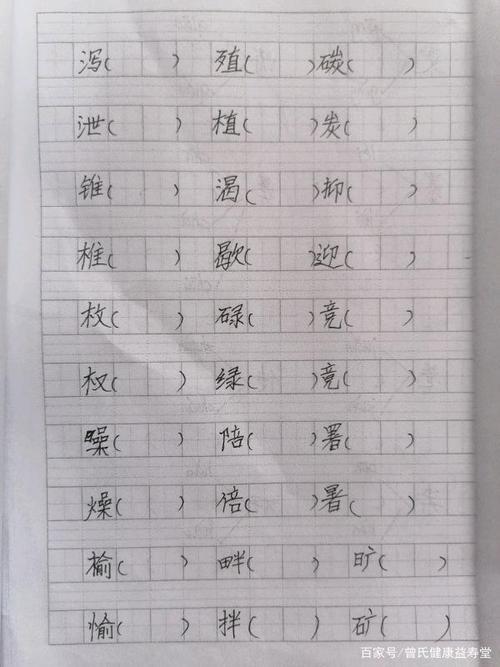 泻(  ) 殖(  )碳(  )
泄(  ) 植(  )炭(  )
锥(  ) 渴(  )抑(  )
椎(  ) 歇(  )迎(  )
枚(  ) 碌(  )竞(  )
权(  ) 绿(  )竟(  )
噪(  ) 陪(  )署(  )
燥(  ) 倍(  )暑(  )
榆(  ) 畔(  ) 旷(  )
愉(  ) 拌(  ) 矿(  )
百家号/曾氏健康益寿堂